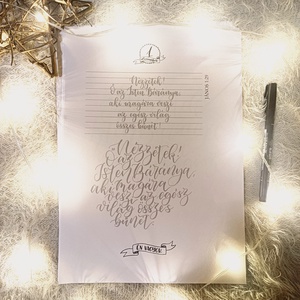 1
Nézzétek!
Ő az Isten Báránya,
aki magára veszi
az egész világ
összes bűnét!
JÁNOS 1:29
Nézzétek!
Ő az
Isten Báránya,
aki magára
veszi az egész
világ összes
bűnét!
ÉN VAGYOK